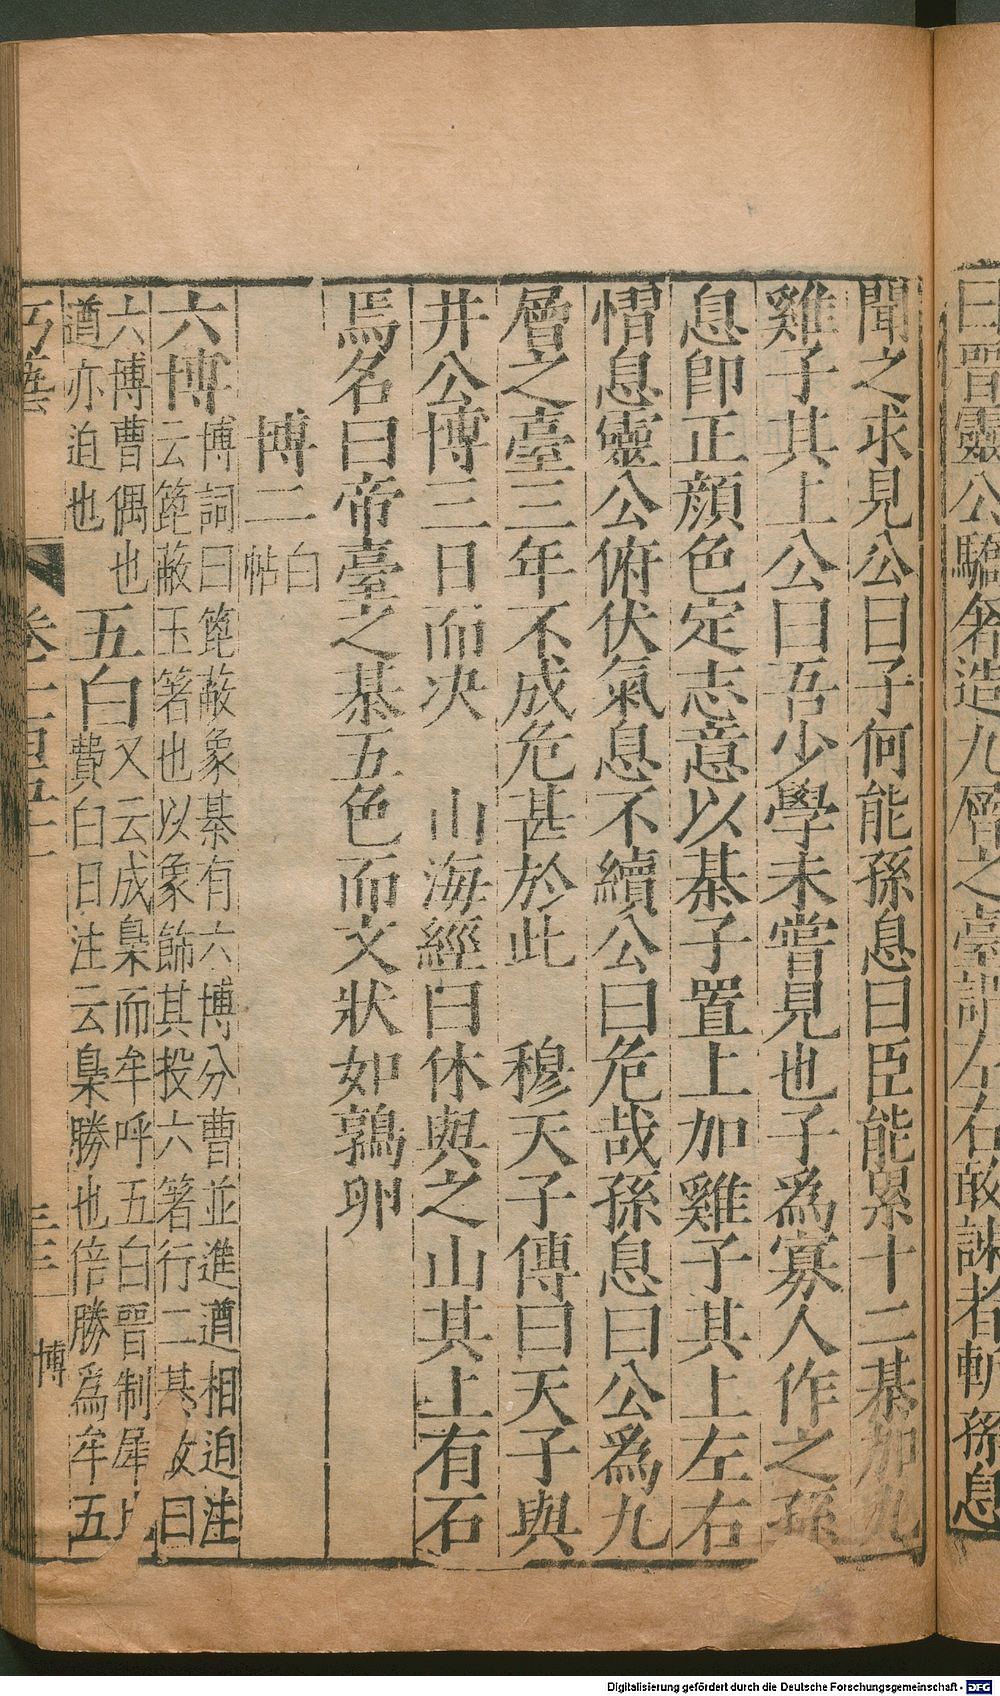 曰晉靈公驕奢造九層之臺謂左右敢諫者斬孫息
聞之求見公曰子何能孫息曰臣能累十二棊加九
雞子其上公曰吾少學未嘗見也子為寡人作之孫
息即正顏色定志意以棊子置上加雞子其上左右
慴息靈公俯伏氣息不續公曰危哉孫息曰公爲九
層之臺三年不成危甚於此　穆天子傳曰天子與
井公博三日而决　山海經曰休與之山其上有石
焉名曰帝臺之棊五色而文狀如鶉卵
博二白
帖
六博博詞曰箆蔽象棊有六博分曹並進遒相迫注
云箆蔽玉箸也以象飾其投六箸行二棊故曰
六博曹偶也五白又云成梟而牟呼五白晉制犀
遒亦迫也費白日注云梟勝也倍勝爲牟五
卷
三三
博
Digitalisierung gefördert durch die Deutsche Forschungsgemeinschaft - DFG